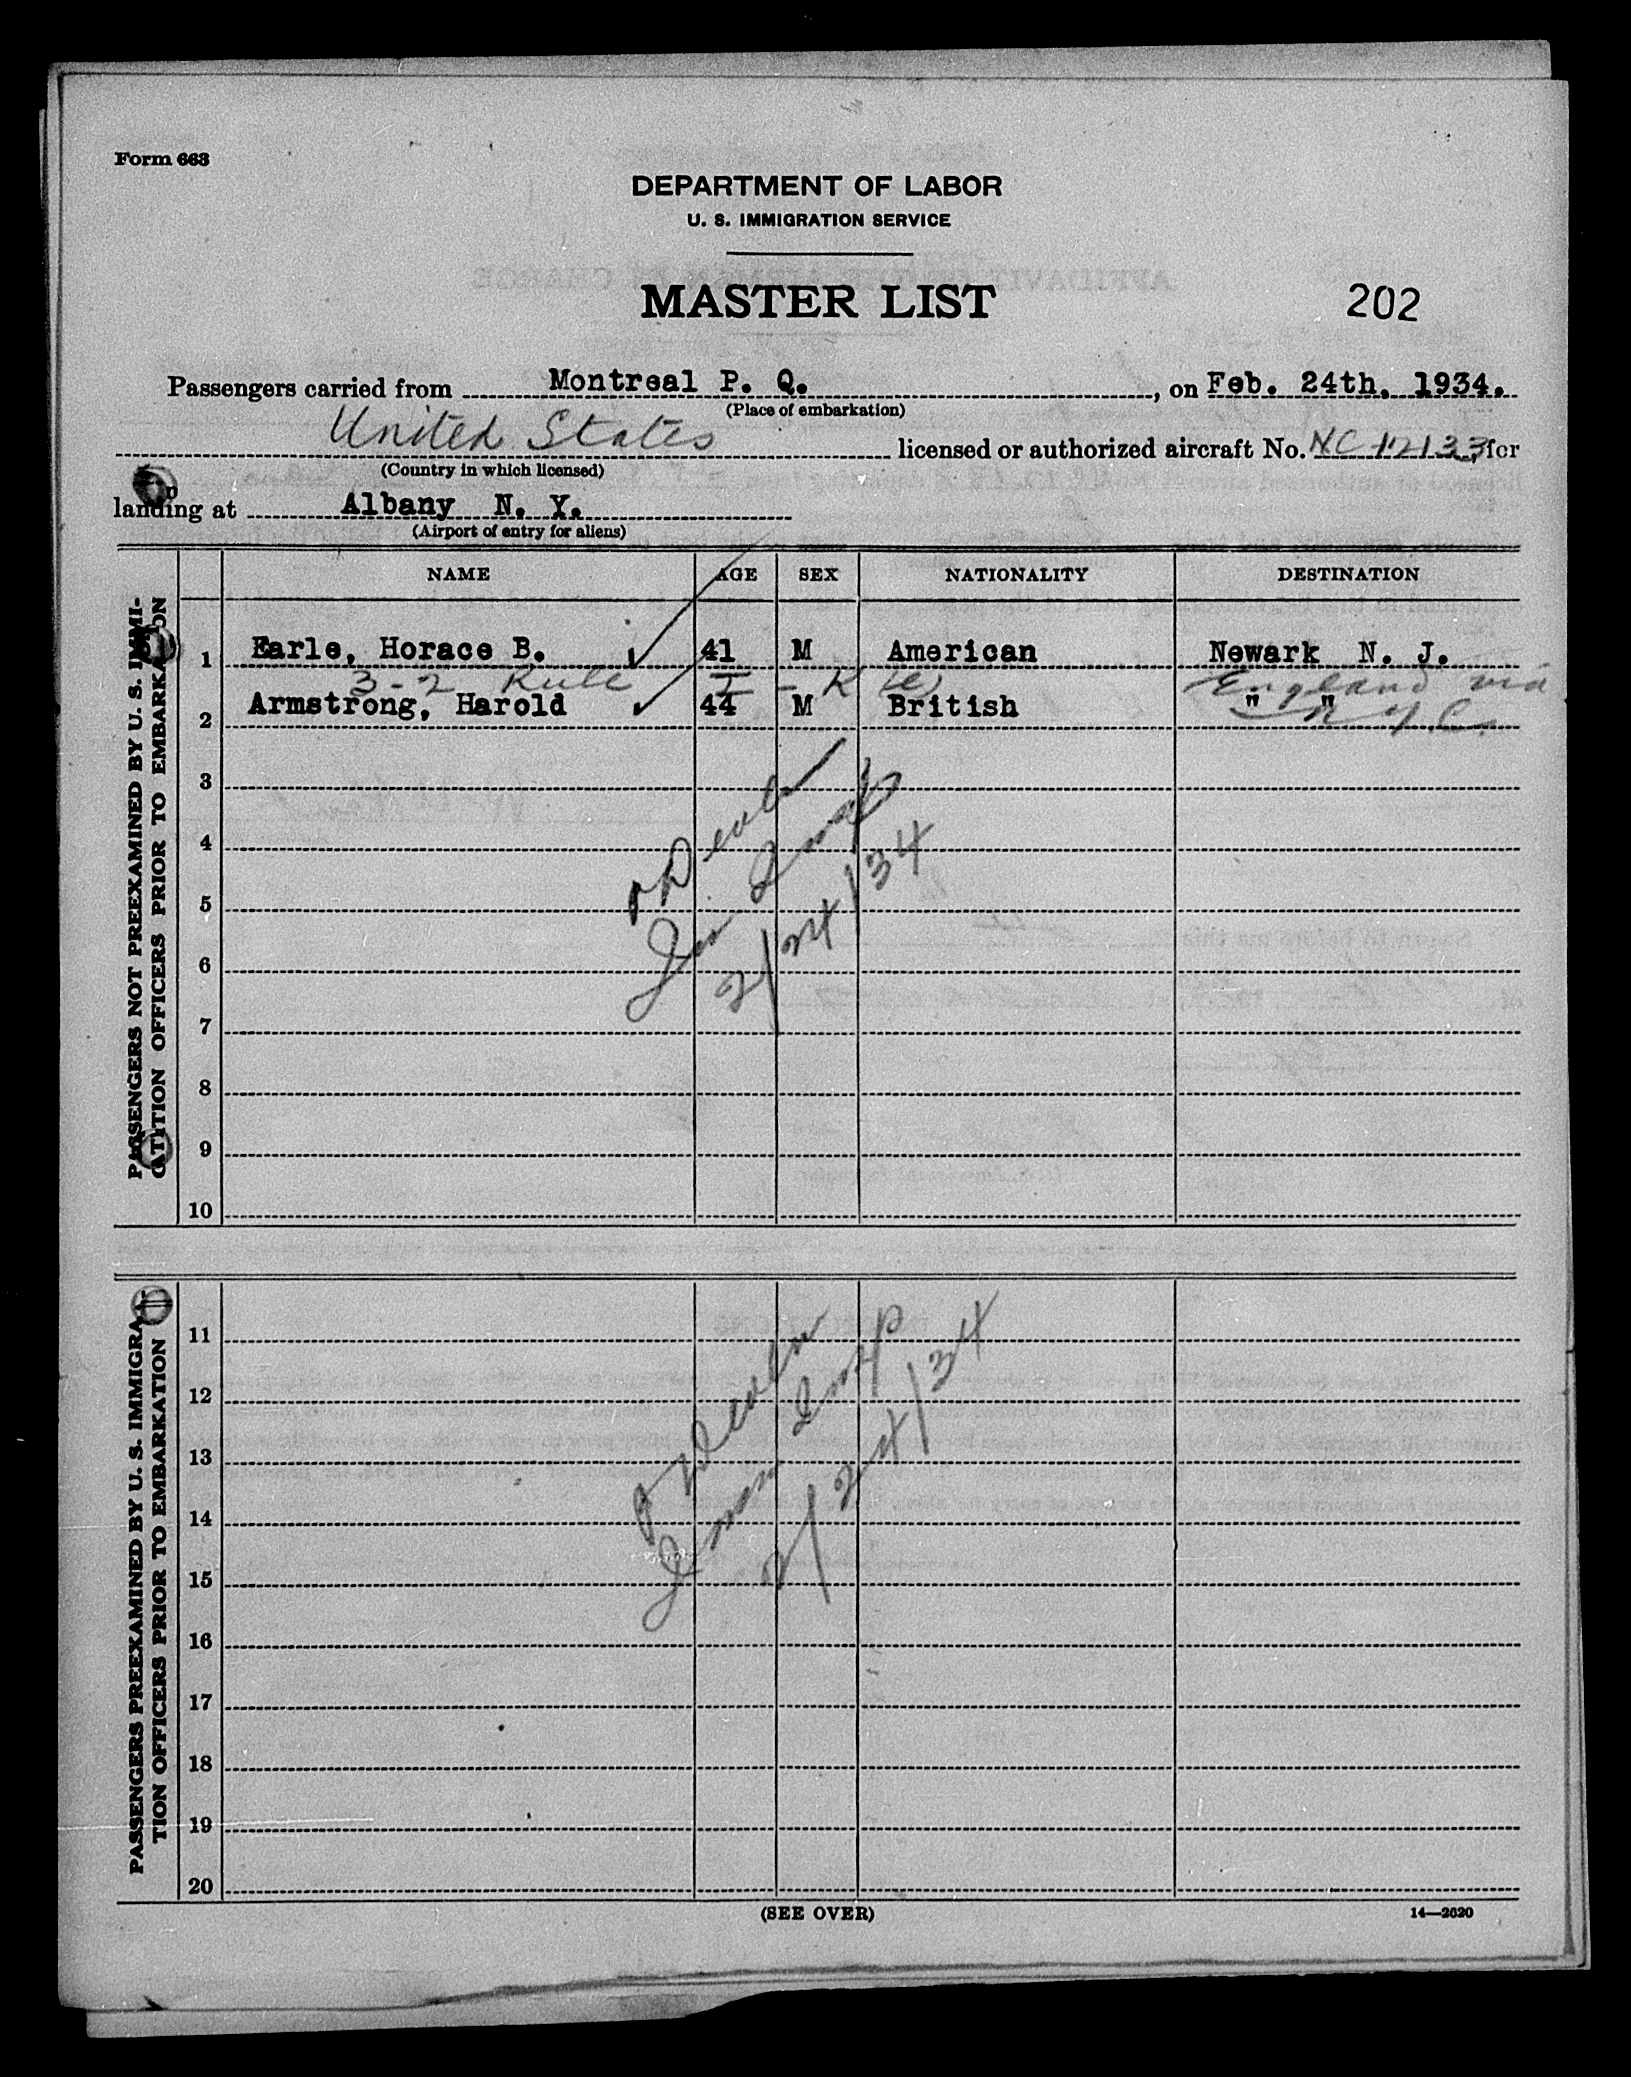 Form 663
DEPARTMENT OF LABOR
U. S. IMMIGRATION SERVICE
MASTER LIST
202
Passengers carried from Montreal P. Q., on Feb. 24th, 1934.
(Place of embarkation)
United States licensed or authorized aircraft No. NC 12133, for
(Country in which licensed)
landing at Albany N. Y.
(Airport of entry for aliens)
NAME AGE SEX NATIONALITY DESTINATION
PASSENGERS NOT PREEXAMINED BY U. S. IMMI-
GRATION OFFICERS PRIOR TO EMBARKATION
1 Earle, Horace B. 41 M American Newark N. J.
3-2 Rule I - K (e) England via
2 Armstrong, Harold 44 M British " "
N.Y.C.
3
4
5
6
2/24/34
7
8
9
10
PASSENGERS PREEXAMINED BY U. S. IMMIGRA-
TION OFFICERS PRIOR TO EMBARKATION
11
12
13
14
2/24/34
15
16
17
18
19
20
(SEE OVER)
14—2020